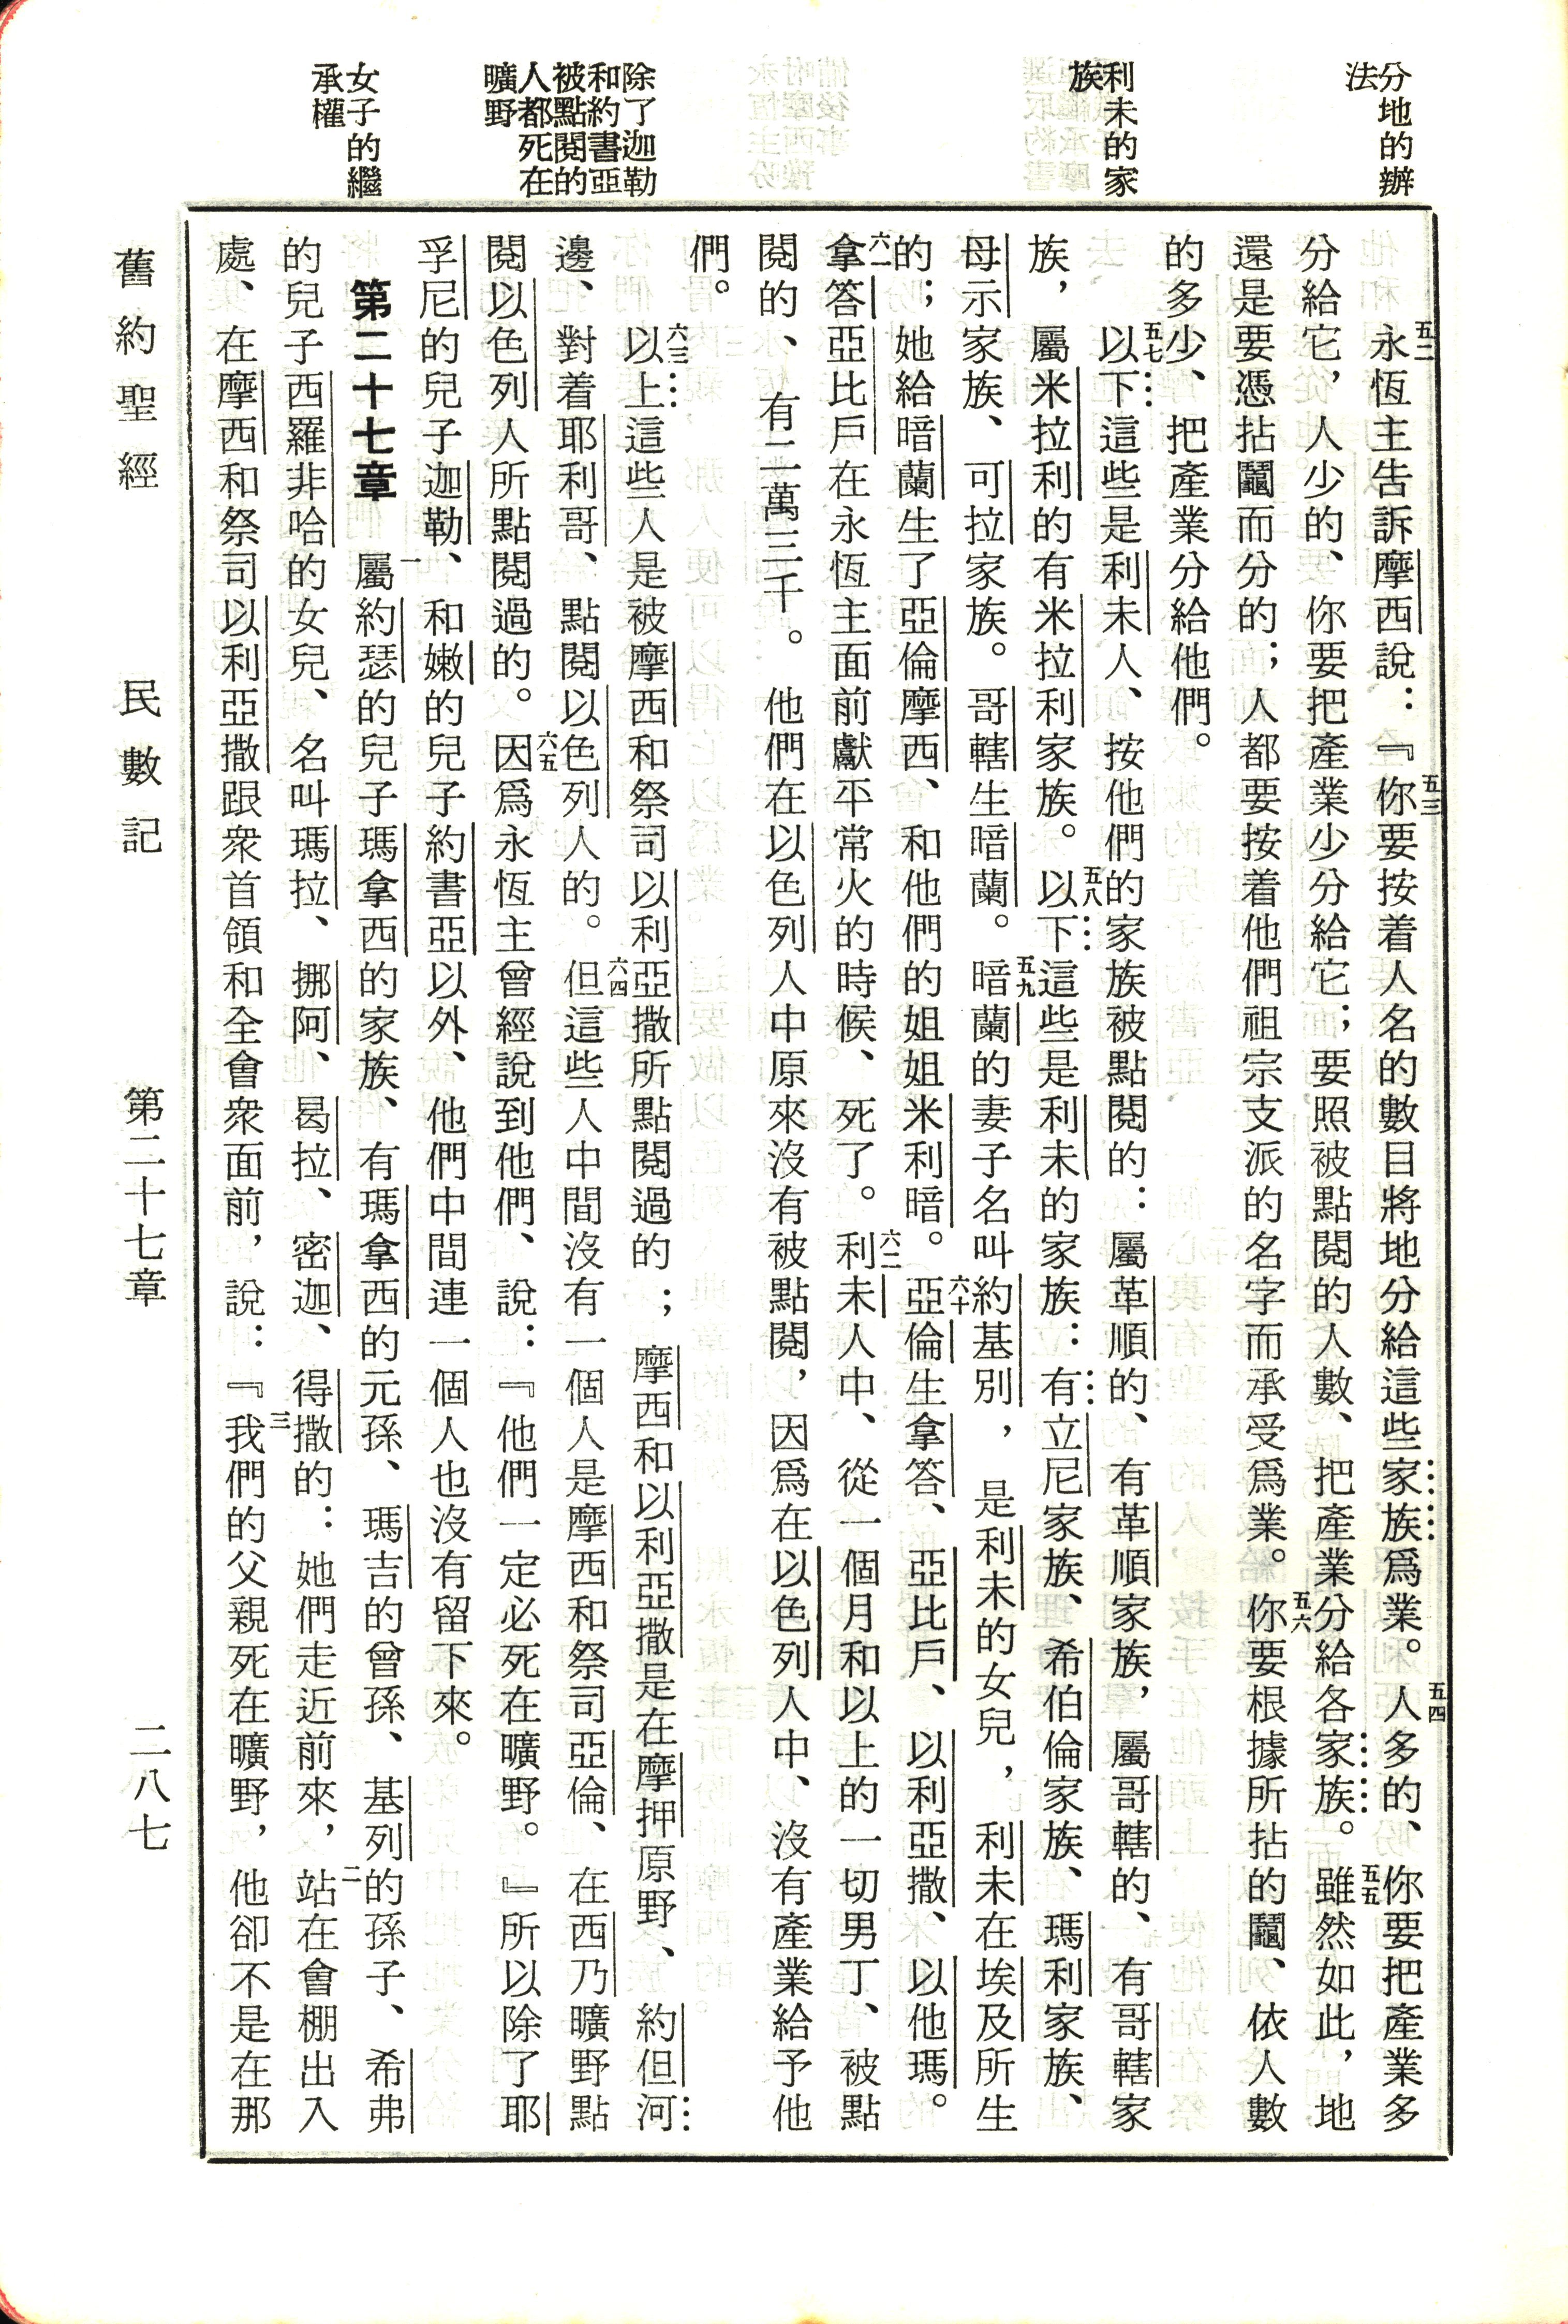 分地的辦
法
利未的家
族
除了迦勒
和約書亞
被點閱的
人都死在
曠野
女子的繼
承權
五二永恆主告訴摩西說：『五三你要按着人名的數目將地分給這些家族爲業。五四人多的、你要把產業多
分給它，人少的、你要把產業少分給它；要照被點閱的人數、把產業分給各家族。五五雖然如此，地
還是要憑拈鬮而分的；人都要按着他們祖宗支派的名字而承受爲業。五六你要根據所拈的鬮、依人數
的多少、把產業分給他們。
五七以下這些是利未人、按他們的家族被點閱的：屬革順的、有革順家族，屬哥轄的、有哥轄家
族，屬米拉利的有米拉利家族。五八以下這些是利未的家族：有立尼家族、希伯倫家族、瑪利家族、
母示家族、可拉家族。哥轄生暗蘭。五九暗蘭的妻子名叫約基別，是利未的女兒，利未在埃及所生
的；她給暗蘭生了亞倫摩西、和他們的姐姐米利暗。六十亞倫生拿答、亞比戶、以利亞撒、以他瑪。
六一拿答亞比戶在永恆主面前獻平常火的時候、死了。六二利未人中、從一個月和以上的一切男丁、被點
閱的、有二萬三千。他們在以色列人中原來沒有被點閱，因爲在以色列人中、沒有產業給予他
們。
六三以上這些人是被摩西和祭司以利亞撒所點閱過的；摩西和以利亞撒是在摩押原野、約但河
邊、對着耶利哥、點閱以色列人的。六四但這些人中間沒有一個人是摩西和祭司亞倫、在西乃曠野點
閱以色列人所點閱過的。六五因爲永恆主曾經說到他們、說：『他們一定必死在曠野。』所以除了耶
孚尼的兒子迦勒、和嫩的兒子約書亞以外、他們中間連一個人也沒有留下來。
第二十七章　一屬約瑟的兒子瑪拿西的家族、有瑪拿西的元孫、瑪吉的曾孫、基列的孫子、希弗
的兒子西羅非哈的女兒、名叫瑪拉、挪阿、曷拉、密迦、得撒的：她們走近前來，二站在會棚出入
處、在摩西和祭司以利亞撒跟衆首領和全會衆面前，說：『三我們的父親死在曠野，他卻不是在那
舊約聖經　民數記　第二十七章　二八七